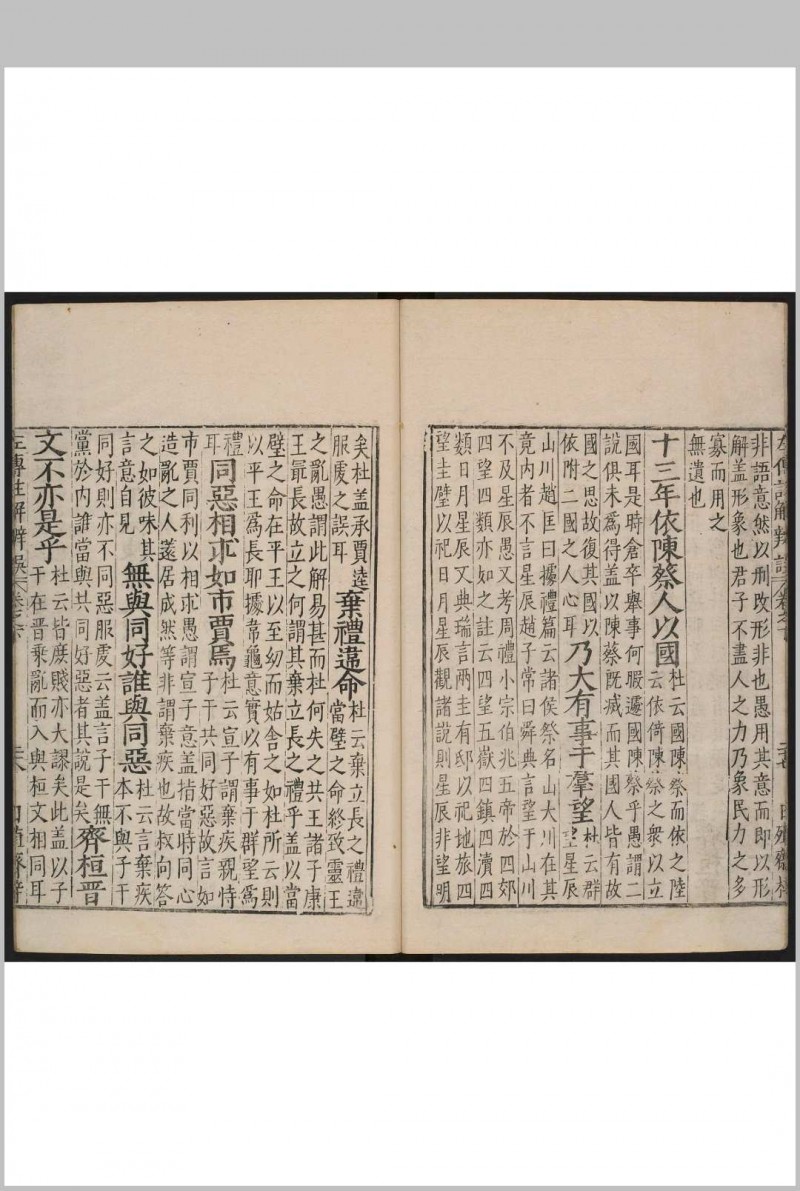 左傳註解辨誤卷之下 二十七 日殖齋梓
非語意然以刑改形非也愚用其意而即以形
解盖形象也君子不盡人之力乃象民力之多
寡而用之
無遺也
十三年依陳蔡人以國 杜云國陳蔡而依之陸
云依倚陳蔡之衆以立
國耳是時倉卒舉事何暇遷國陳蔡乎愚謂二
說俱未爲得盖以陳蔡旣烕而其國人皆有故
國之思故復其國以
依附二國之人心耳 乃大有事于羣望 杜云群
望星辰
山川趙匡曰據禮篇云諸侯祭名山大川在其
竟内者不言星辰趙子常曰舜典言望于山川
不及星辰愚又考周禮小宗伯兆五帝於四郊
四望四類亦如之註云四望五嶽四鎮四瀆四
類日月星辰愚又典瑞言兩圭有邸以祀地旅四
望圭璧以祀日月星辰觀諸說則星辰非望明
矣杜盖承賈逵
服虔之誤耳 棄禮違命 杜云棄立長之禮違
當璧之命終致靈王
之亂愚謂此解易甚而杜何失之共王諸子康
王最長故立之何謂其棄立長之禮乎盖以當
璧之命在平王以至幼而姑舍之如杜所云則
以平王爲長耶據韋龜意實以有事于群望爲
禮
耳 同惡相求如市賈焉 杜云宣子謂棄疾親恃
子干共同好惡故言如
市賈同利以相求愚謂宣子意盖指當時同心
造亂之人蓫居成然等非謂棄疾也故叔向答
之如彼味其
言意自見 無與同好誰與同惡 杜云言棄疾
本不與子干
同好則亦不同惡服虔云盖言子干無
黨於内誰當與共同好惡者其說是矣 齊桓晋
文不亦是乎 杜云皆庶賤亦大謬矣此盖以子
干在晋乘亂而入與桓文相同耳
左傳註解辨誤 卷之下 二十八 日殖齋梓